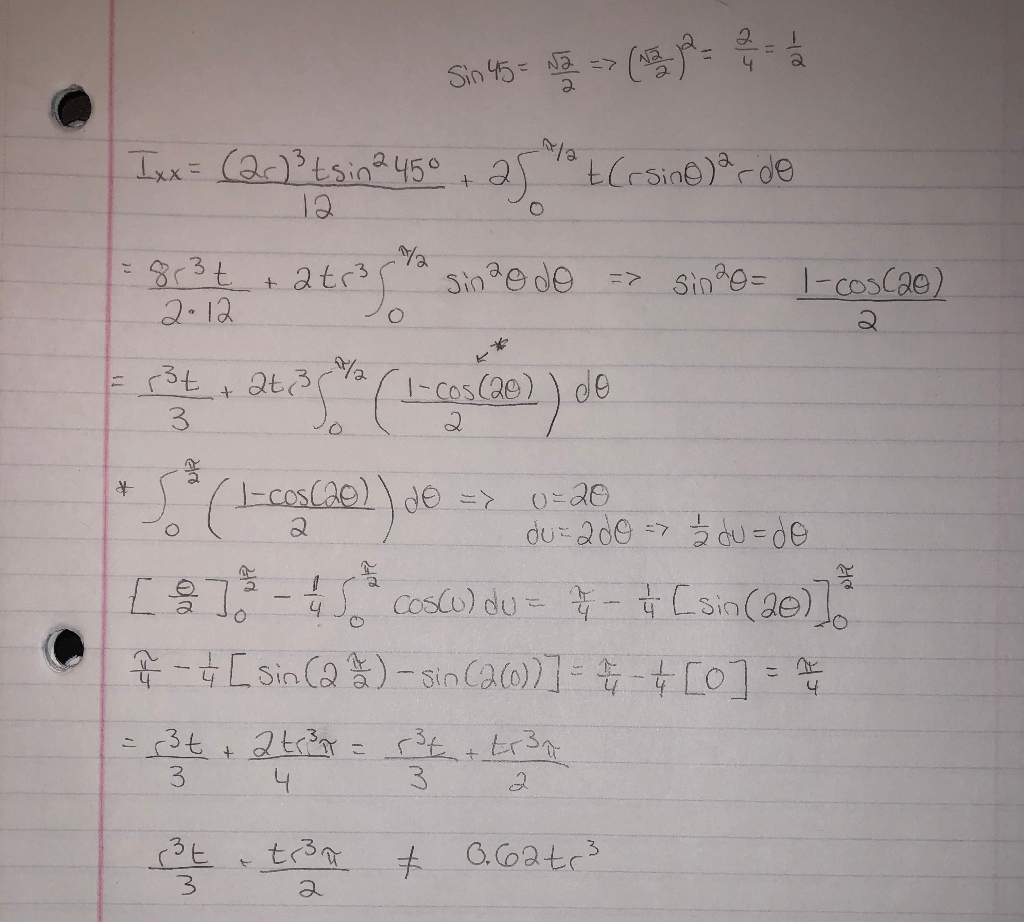 Sin 45 = √2/2 => (√2/2)² = 2/4 = 1/2
Ixx = (2r)³ t sin² 45° / 12 + 2∫₀^π/2 t(r sinθ)² r dθ
= 8r³t / 2·12 + 2tr³ ∫₀^π/2 sin²θ dθ => sin²θ = 1-cos(2θ) / 2
*
= r³t / 3 + 2tr³ ∫₀^π/2 (1-cos(2θ) / 2) dθ
* ∫₀^π/2 (1-cos(2θ) / 2) dθ => u = 2θ
du = 2dθ => 1/2 du = dθ
[θ/2]₀^π/2 - 1/4 ∫₀^π/2 cos(u) du = π/4 - 1/4 [sin(2θ)]₀^π/2
π/4 - 1/4 [sin(2 π/2) - sin(2(0))] = π/4 - 1/4 [0] = π/4
= r³t / 3 + 2tr³π / 4 = r³t / 3 + tr³π / 2
r³t / 3 + tr³π / 2 ≠ 0.62tr³